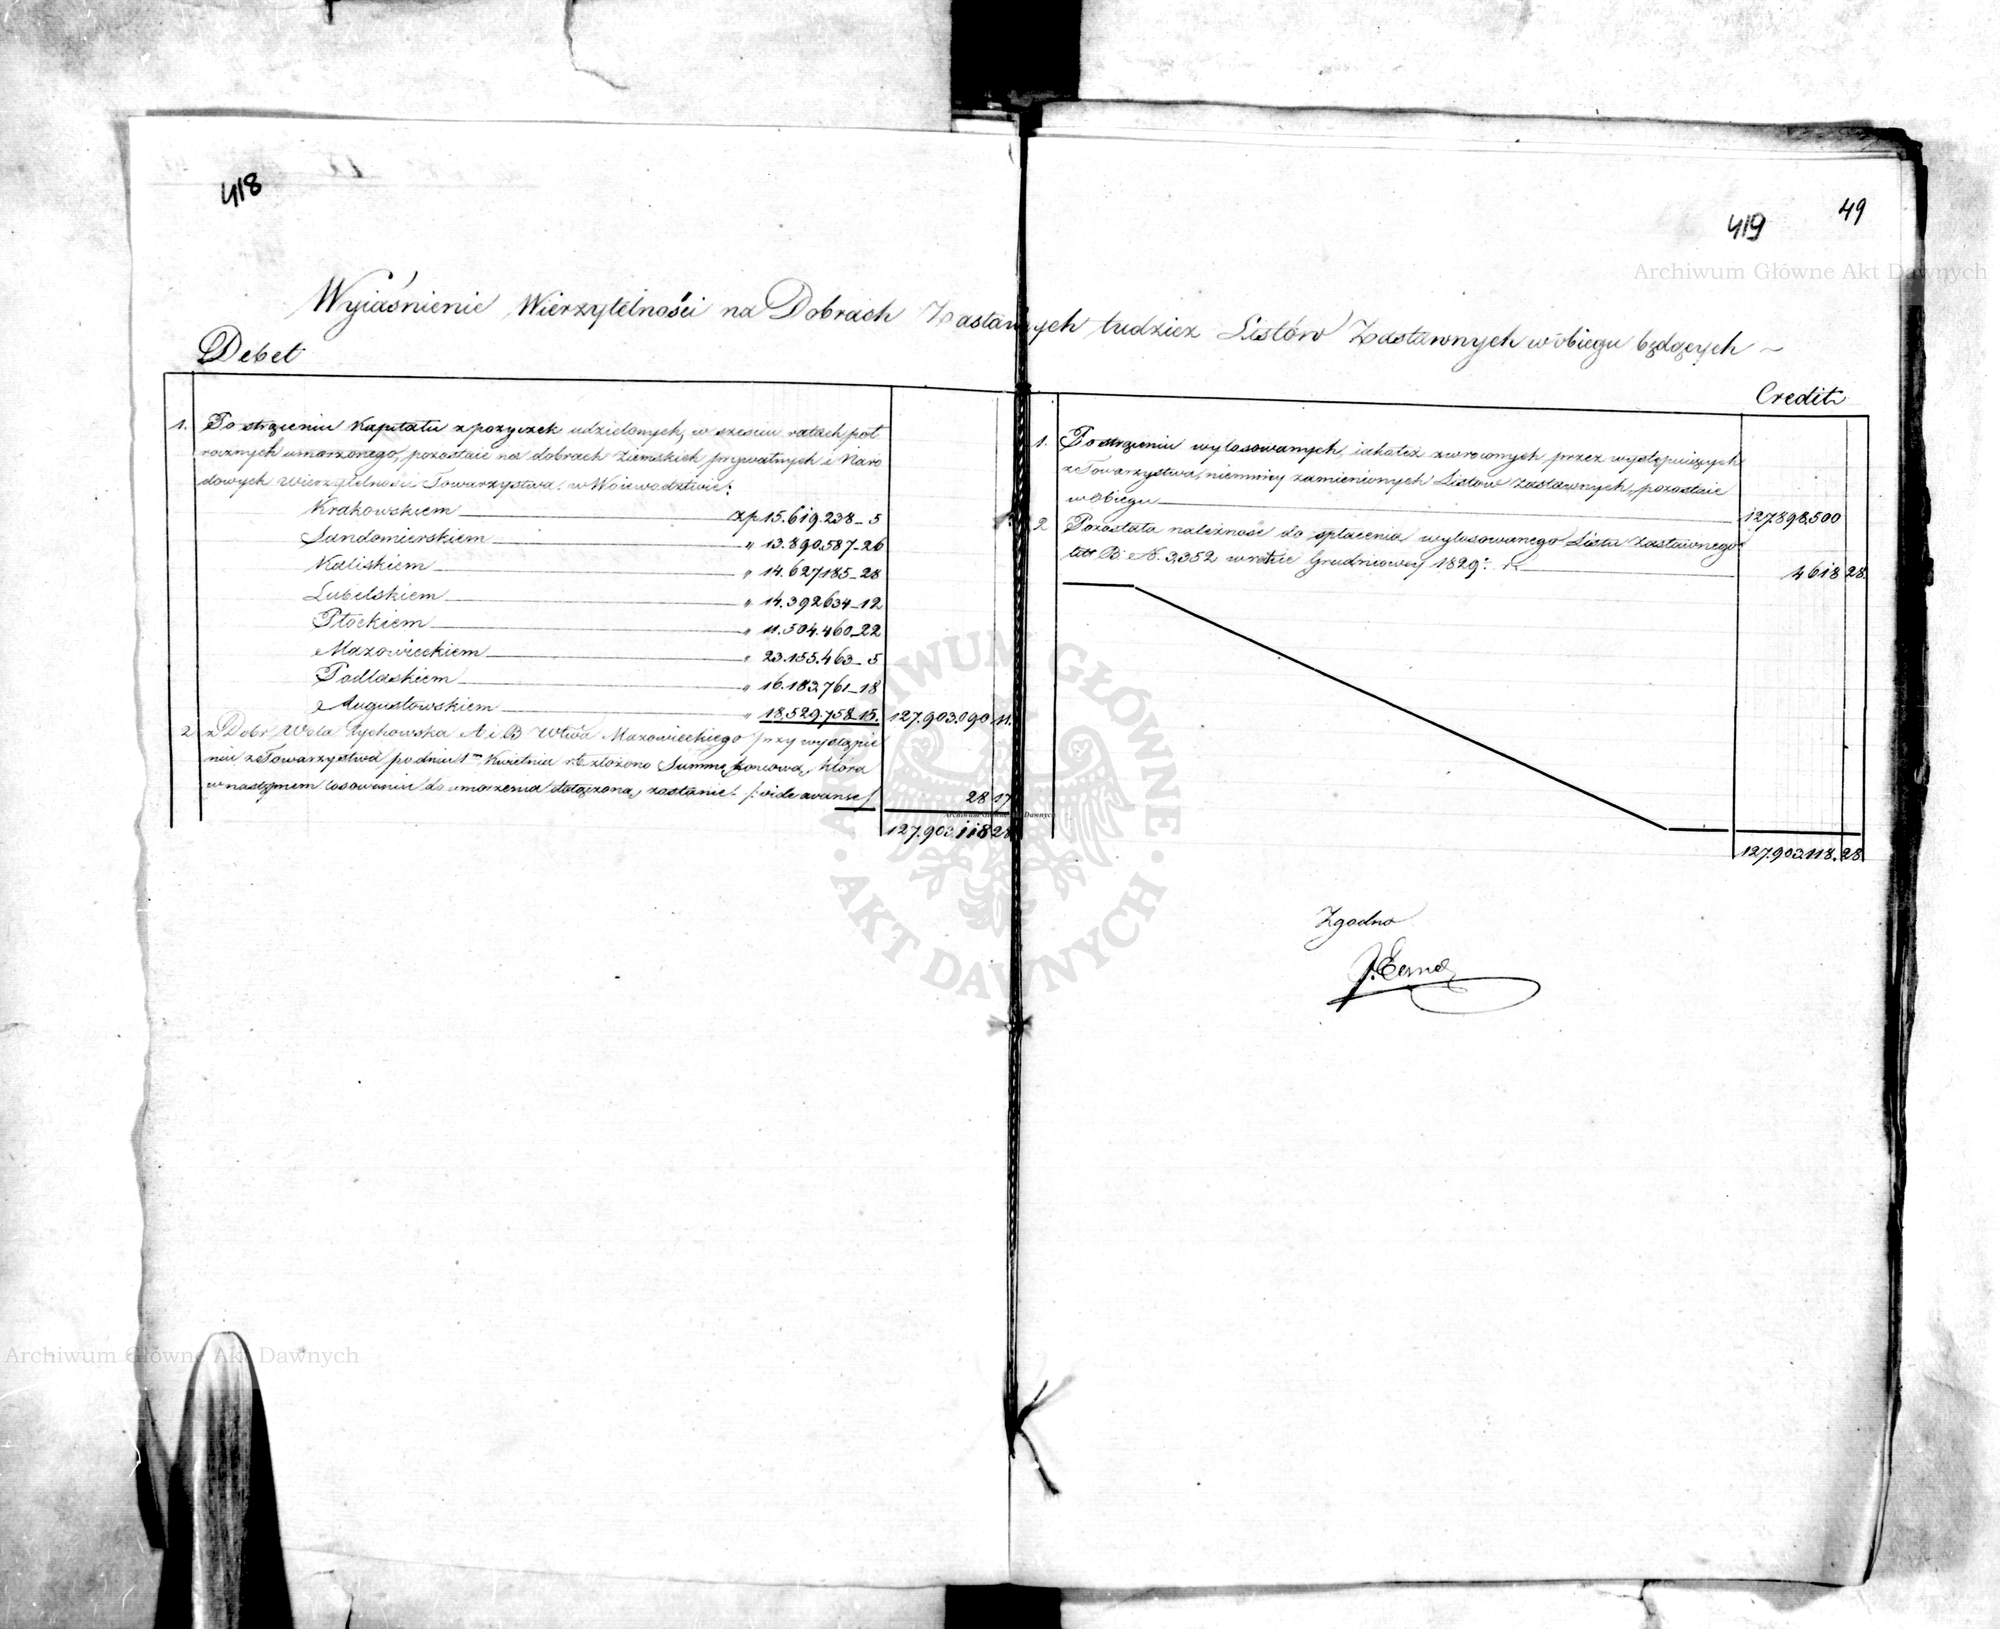 418
419
49
Archiwum Główne Akt Dawnych
Wyiaśnienie Wierzytelności na Dobrach Zastawnych tudzież Listów Zastawnych w obiegu będących
Debet
1. Po strąceniu Kapitału z pożyczek udzielonych, w sześciu ratach pół
rocznych umorzonego, pozostaie na dobrach Ziemskich prywatnych i Naro
dowych wierzytelności Towarzystwa, w Woiewództwie:
Krakowskiem zp 15.619.238 - 5
Sandomierskiem " 13.890.587 - 26
Kaliskiem " 14.627.185 - 28
Lubelskiem " 14.392.634 - 12
Płockiem " 11.504.460 - 22
Mazowieckiem " 23.155.463 - 5
Podlaskiem " 16.183.761 - 18
Augustowskiem " 18.529.758 - 15. 127.903.090 11.
2 z Dóbr Wola Rychowska A i B Wtwa Mazowieckiego przy wystąpie
niu z Towarzystwa po dniu 1m Kwietnia rb złożono Summę, która
w następnem losowaniu do umorzenia dołączoną zostanie. /:vide avanse/ 28 17
127.903.118 28
Credit
1. Po strąceniu wylosowanych, iakoteż zwróconych przez występuiących
z Towarzystwa, niemniey zamienionych Listów Zastawnych, pozostaie
w obiegu 127.898.500
2 Pozostała należność do opłacenia wylosowanego Listu Zastawnego
litt B. N. 3,352 w racie Grudniowey 1829 r. 4618 28.
127.903.118. 28
Zgodno
ARCHIWUM GŁÓWNE
AKT DAWNYCH
Archiwum Główne Akt Dawnych
Archiwum Główne Akt Dawnych